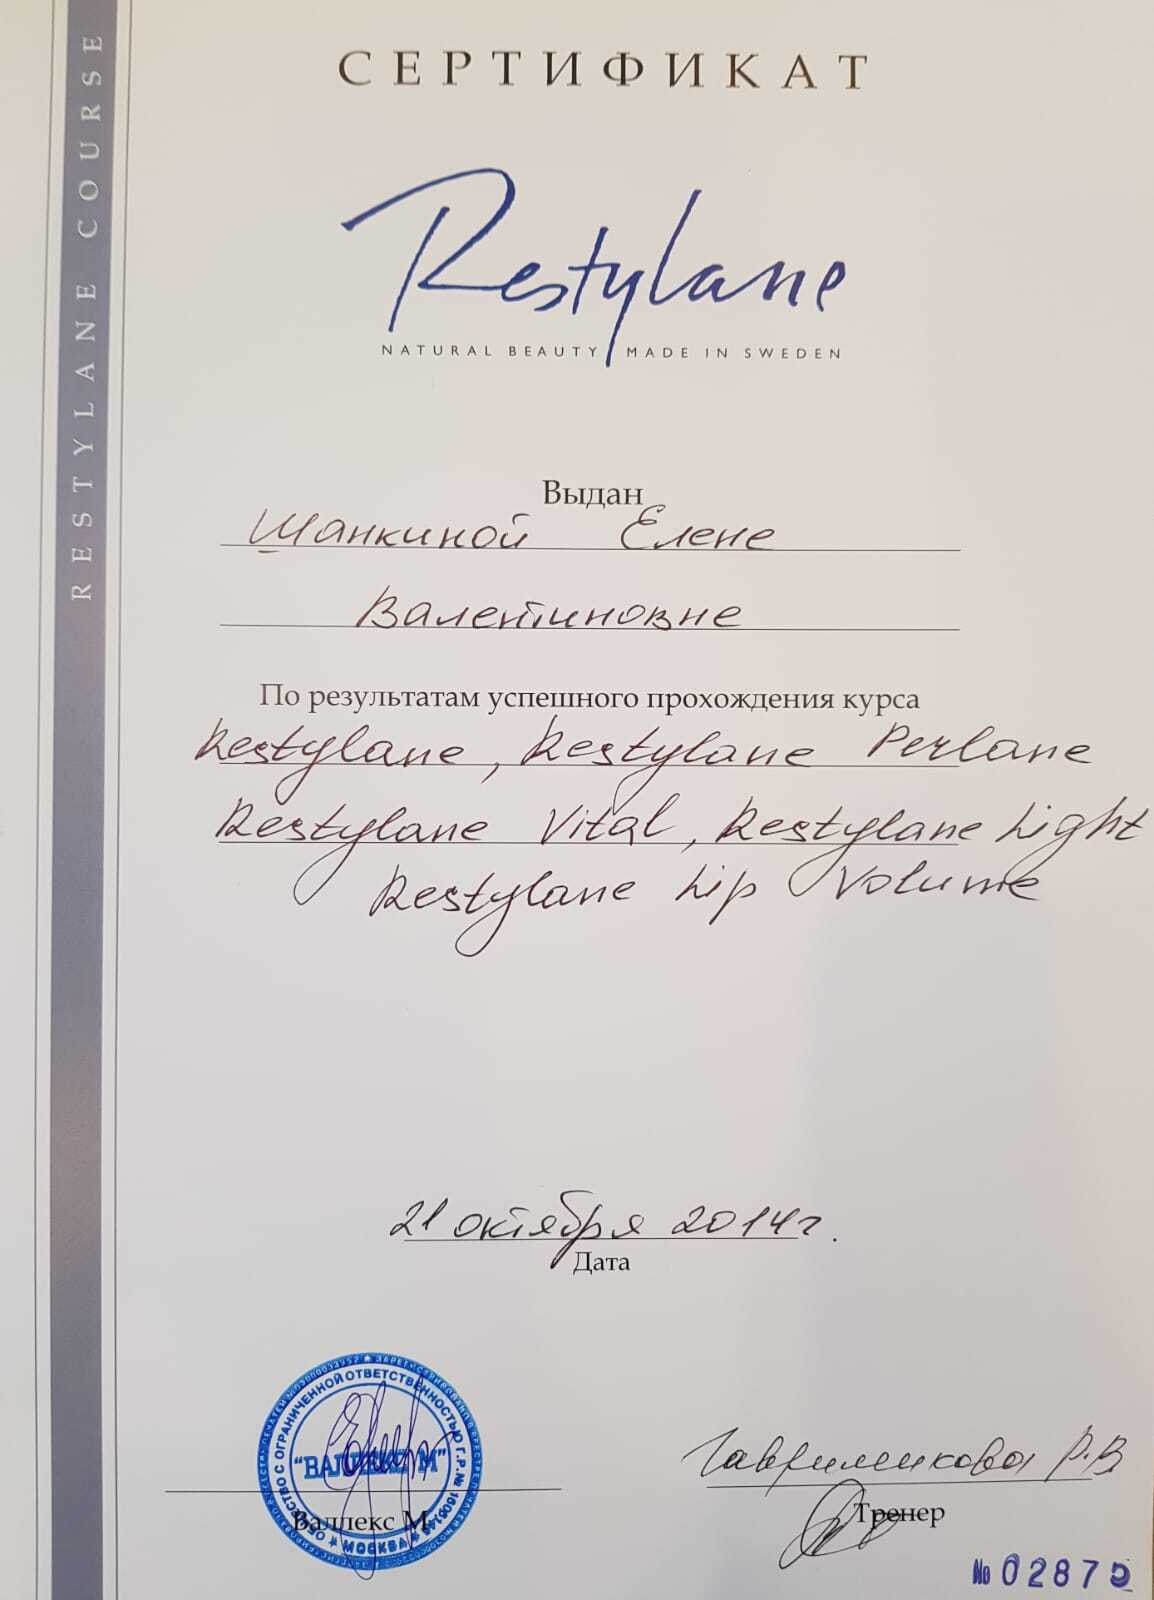 RESTYLANE COURSE
СЕРТИФИКАТ
Restylane
NATURAL BEAUTY MADE IN SWEDEN
Выдан
Шанкиной Елене
Валентиновне
По результатам успешного прохождения курса
Restylane, Restylane Perlane
Restylane Vital, Restylane Light
Restylane Lip Volume
21 октября 2014г.
Дата
ОБЩЕСТВО С ОГРАНИЧЕННОЙ ОТВЕТСТВЕННОСТЬЮ Г.Р.№
"ВАЛЛЕКС М"
МОСКВА
Валлекс М
Р.В
Тренер
№ 02875